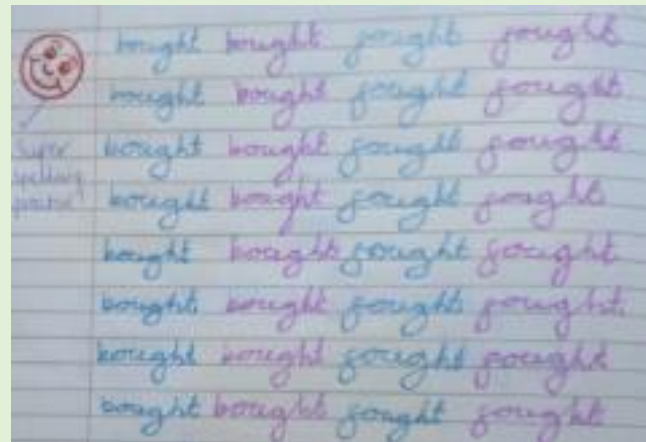 bought bought fought fought
bought bought fought fought
Super
bought bought fought fought
spelling
practise!
bought bought fought fought
bought bought fought fought
bought bought fought fought
bought bought fought fought
bought bought fought fought